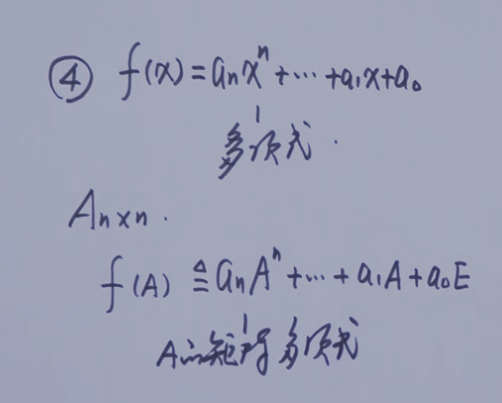 ④ f(x)=aₙxⁿ+⋯+a₁x+a₀
多项式.
Aₙₓₙ.
f(A) ≜ aₙAⁿ+⋯+a₁A+a₀E
A的矩阵多项式